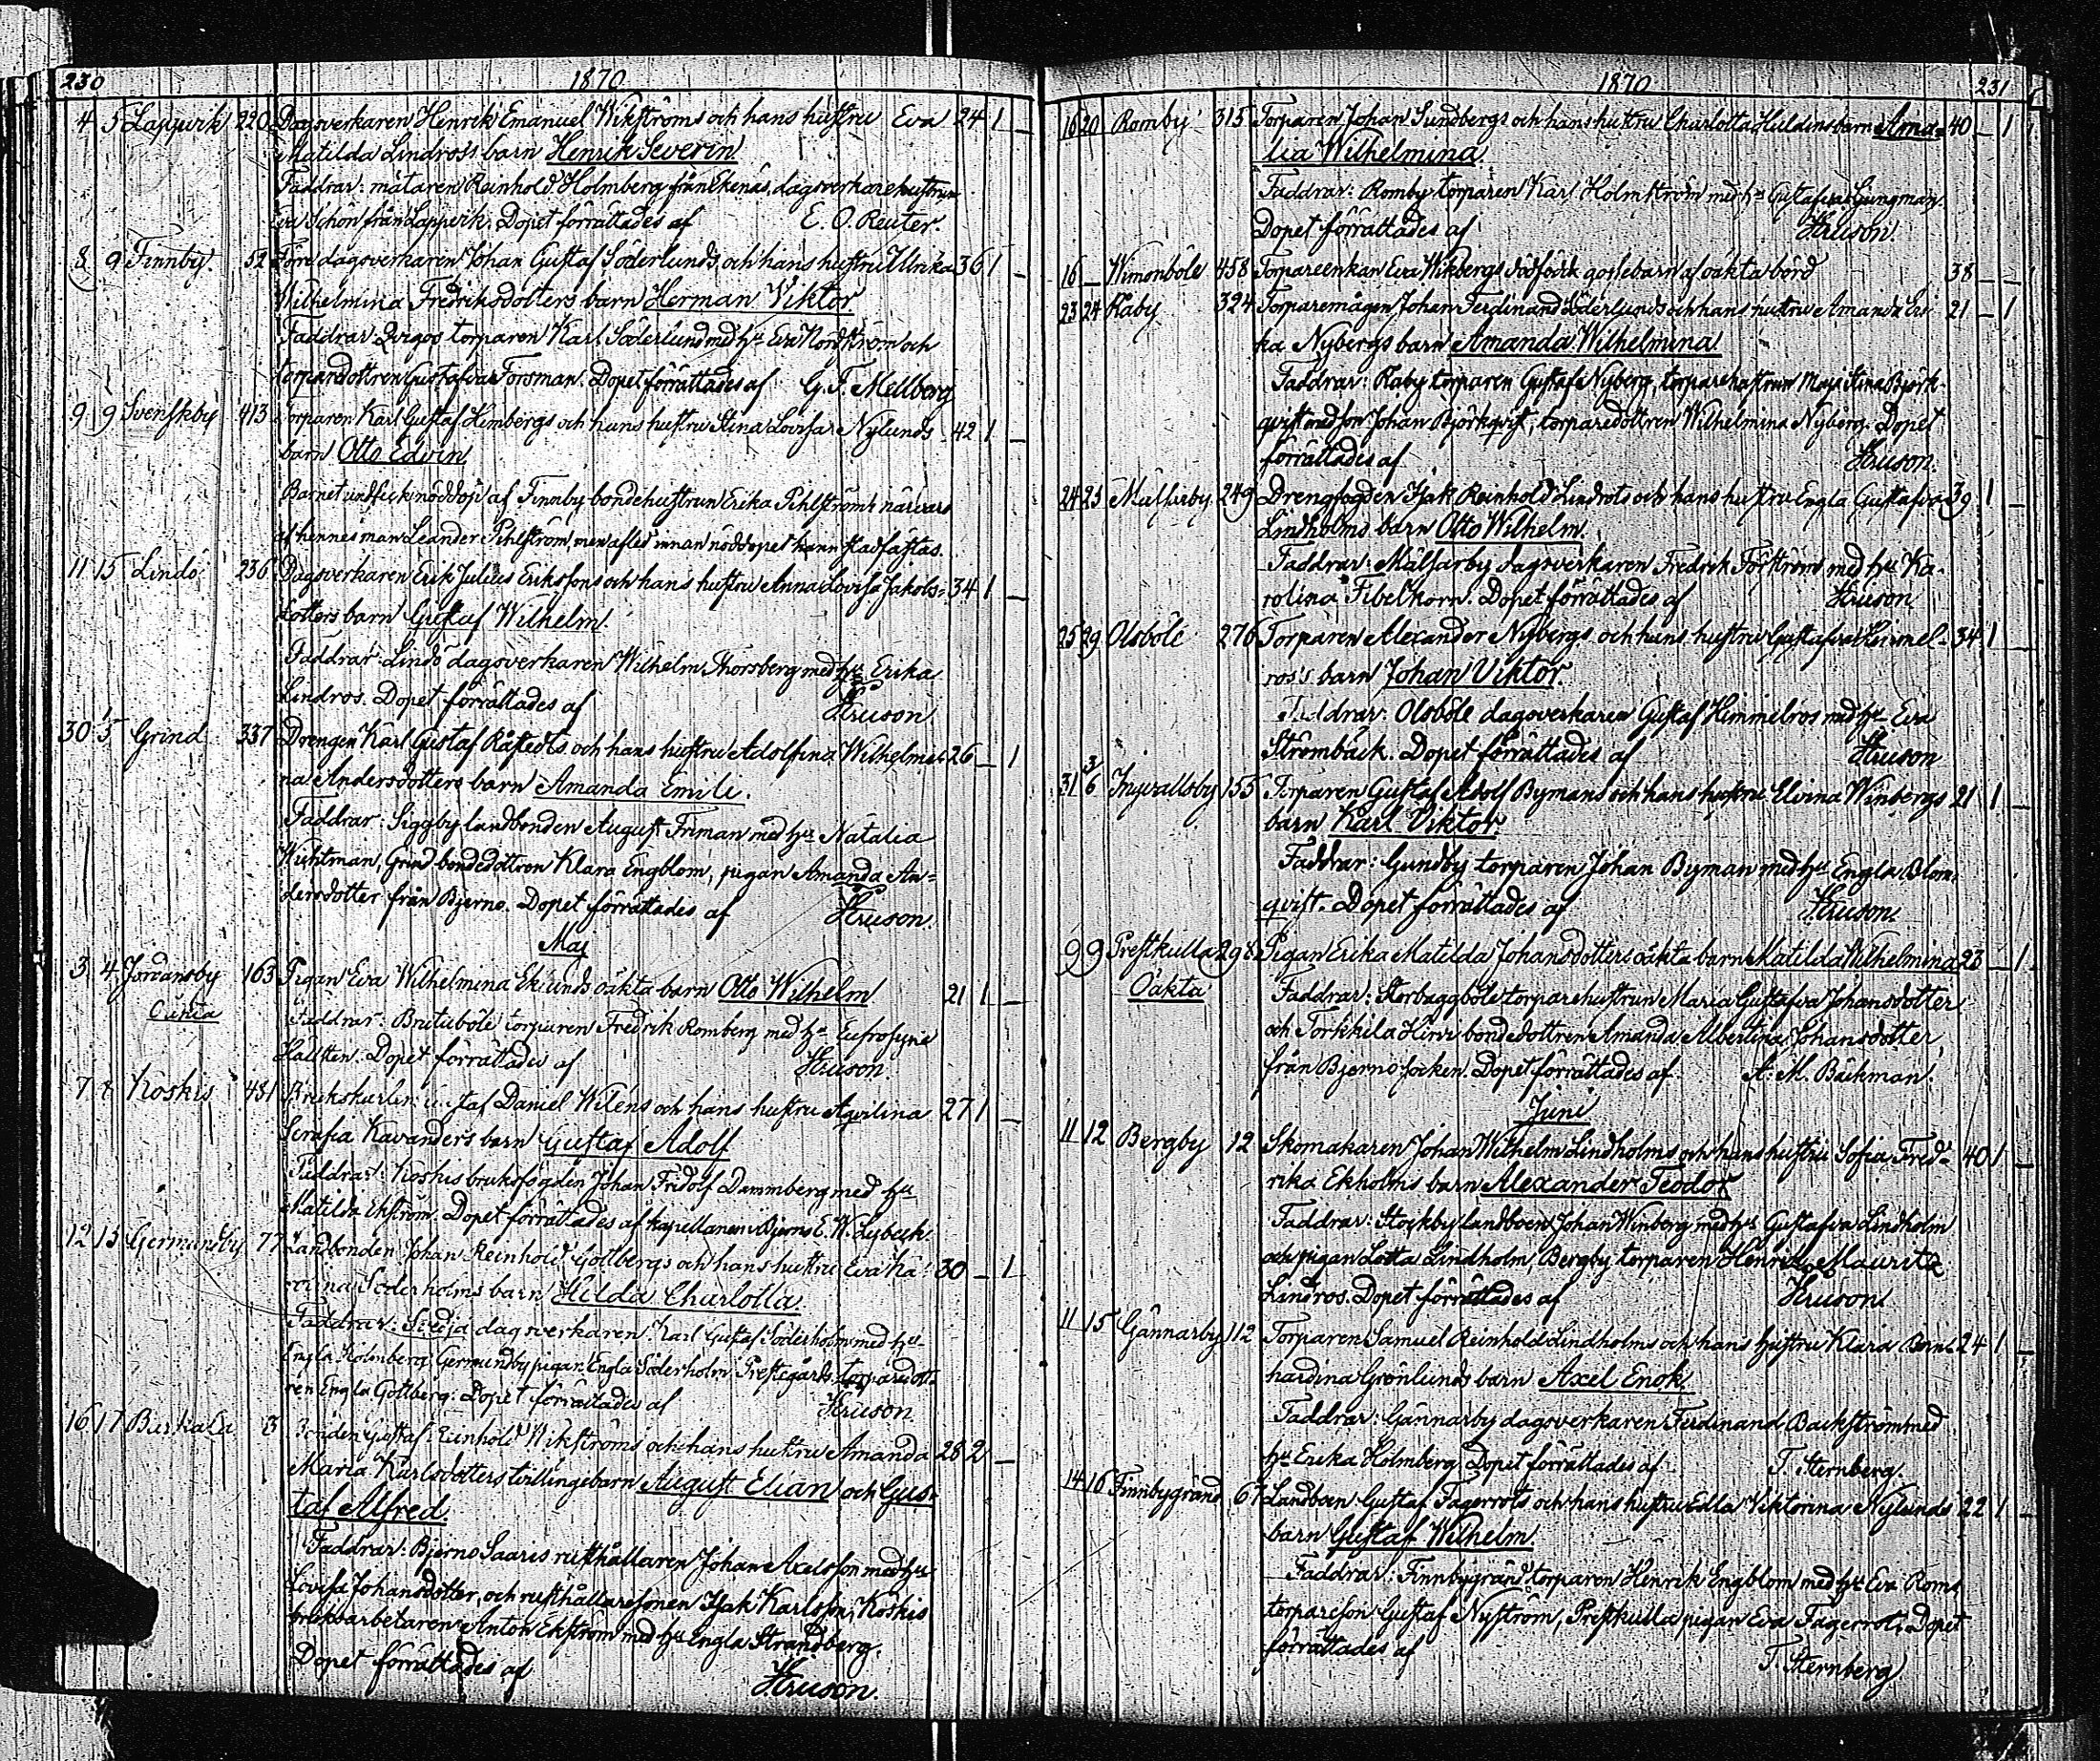 230 1870
4 5 Lappvik 220 Dagsverkaren Henrik Emanuel Wikströms och hans hustru Eva 24 1 –
Matilda Lindross barn Henrik Severin
Faddrar: mätaren Reinhold Holmberg från Ekenäs, dagsverkarehustrun
Eva Schön från Lappvik. Dopet förrättades af E. O. Reuter.
8 9 Finnby 52 Förre dagsverkaren Johan Gustaf Söderlunds och hans hustru Ulrika 36 1 –
Wilhelmina Fredriksdotters barn Herman Viktor
Faddrar: torparen Karl Söderlund med hu Eva Nordström och
torpardottren Gustafva Forsman. Dopet förrättades af G. F. Mellberg
9 9 Svenskby 413 Torparen Karl Gustaf Limbergs och hans hustru Stina Lovisa Nylunds 42 1 –
barn Otto Edvin
Barnet undfick nöddop af Finnby bondehustrun Erika Pihlström i närvaro
af hennes man Leander Pihlström, men afled innan nöddopet hann stadfästas.
11 15 Lindö 236 Dagsverkaren Erik Julius Erikssons och hans hustru Anna Lovisa Jakobs- 34 1 –
dotters barn Gustaf Wilhelm.
Faddrar: Lindö dagsverkaren Wilhelm Thorsberg med hu Erika
Lindros. Dopet förrättades af Hruson
30 1/5 Grind 337 Drengen Karl Gustaf Råstedts och hans hustru Adolfina Wilhelmi- 26 – 1
na Andersdotters barn Amanda Emili.
Faddrar: Siggby landbonden August Friman med hu Natalia
Wichtman, Grind bondedottren Klara Engblom, pigan Amanda An-
dersdotter från Bjerno. Dopet förrättades af Hruson.
Maj
3 4 Jordansby 163 Pigan Eva Wilhelmina Eklunds oäkta barn Otto Wilhelm 21 1 –
Oäkta Faddrar: Brutuböle torparen Fredrik Romberg med hu Eufrosyne
Hällsten. Dopet förrättades af Hruson.
7 8 Koskis 481 Brukskarlen Gustaf Daniel Wiléns och hans hustru Aqvilina 27 1 –
Serafia Kavanders barn Gustaf Adolf
Faddrar: Koskis bruksfogden Johan Fridolf Dammberg med hu
Matilda Ekström. Dopet förrättades af kapellanen i Bjerno E. W. Lybeck.
12 13 Germundby 77 Landbonden Johan Reinhold Gottbergs och hans hustru Eva Ka- 30 – 1
rolina Söderholms barn Hilda Charlotta.
Faddrar: Sredja dagsverkaren Karl Gustaf Söderholm med hu
Engla Holmberg, Germundby pigan Engla Söderholm, Prestegårds torparedott-
ren Engla Gottberg. Dopet förrättades af Hruson
16 17 Buskala 3 Bonden Gustaf Reinhold Wikströms och hans hustru Amanda 28 2 –
Maria Karlsdotters tvillingebarn August Elian och Gus-
taf Alfred.
Faddrar: Bjerno Saaris rusthållaren Johan Axelsson med hu
Lovisa Johansdotter, och rusthållaresonen Isak Karlsson, Koskis
bruksarbetaren Anton Ekström med hu Engla Strandberg.
Dopet förrättades af Hruson.
1870 231
16 20 Romby 315 Torparen Johan Sundbergs och hans hustru Charlotta Huldins barn Ama- 40 – 1
lia Wilhelmina
Faddrar: Romby torparen Karl Holmström med hu Gustafva Ljungman.
Dopet förrättades af Hruson.
16 – Wimonböle 458 Torpareenkan Eva Wikbergs dödfödde gossebarn af oäkta börd 38 – –
23 24 Raby 324 Torparemågen Johan Ferdinand Söderlunds och hans hustru Amanda Eri- 21 – 1
ka Nybergs barn Amanda Wilhelmina
Faddrar: Raby torparen Gustaf Nyberg, torparehustrun Maja Stina Björk-
qvist med son Johan Björkqvist, torparedottren Wilhelmina Nyberg. Dopet
förrättades af Hruson.
24 25 Mälsarby 249 Drengfogden Isak Reinhold Lindrots och hans hustru Engla Gustafva 39 1 –
Lindholms barn Otto Wilhelm.
Faddrar: Mälsarby dagsverkaren Fredrik Forström med hu Ka-
rolina Fibelkorn. Dopet förrättades af Hruson
25 29 Olsböle 276 Torparen Alexander Nybergs och hans hustru Gustafva Himmel- 34 1
ros's barn Johan Viktor.
Faddrar: Olsböle dagsverkaren Gustaf Himmelros med hu Eva
Strömbäck. Dopet förrättades af Hruson
31 3/6 Ingvallsby 155 Torparen Gustaf Adolf Bymans och hans hustru Elvina Winbergs 21 1 –
barn Karl Viktor.
Faddrar: Gundby torparen Johan Byman med hu Engla Blom-
qvist. Dopet förrättades af Hruson.
9 9 Prestkulla 298 Pigan Erika Matilda Johansdotters oäkta barn Matilda Wilhelmina 23 – 1
Oäkta Faddrar: Storbaggböle torparehustrun Maria Gustafva Johansdotter
och Torkkila Hirvi bondedottren Amanda Albertina Johansdotter
från Bjerno socken. Dopet förrättades af A. M. Bäckman.
Juni
11 12 Bergby 12 Skomakaren Johan Wilhelm Lindholms och hans hustru Sofia Fred- 40 1 –
rika Ekholms barn Alexander Teodor
Faddrar: Stockby landboen Johan Winberg med hu Gustafva Lindholm
och pigan Lotta Lindholm, Bergby torparen Henrik Mauritz
Lindros. Dopet förrättades af Hruson.
11 15 Gännarby 112 Torparen Samuel Reinhold Lindholms och hans hustru Klara Bern- 24 1 –
hardina Grönlunds barn Axel Enok.
Faddrar: Gännarby dagsverkaren Ferdinand Backström med
hu Erika Holmberg. Dopet förrättades af T. Sternberg.
14 16 Finnbygränd 67 Landboen Gustaf Fagerrots och hans hustru Edla Viktorina Nylunds 22 1 –
barn Gustaf Wilhelm
Faddrar: Finnbygränd torparen Henrik Engblom med hu Eva Roms
torpareson Gustaf Nyström, Prestkulla pigan Eva Fagerrot. Dopet
förrättades af T. Sternberg